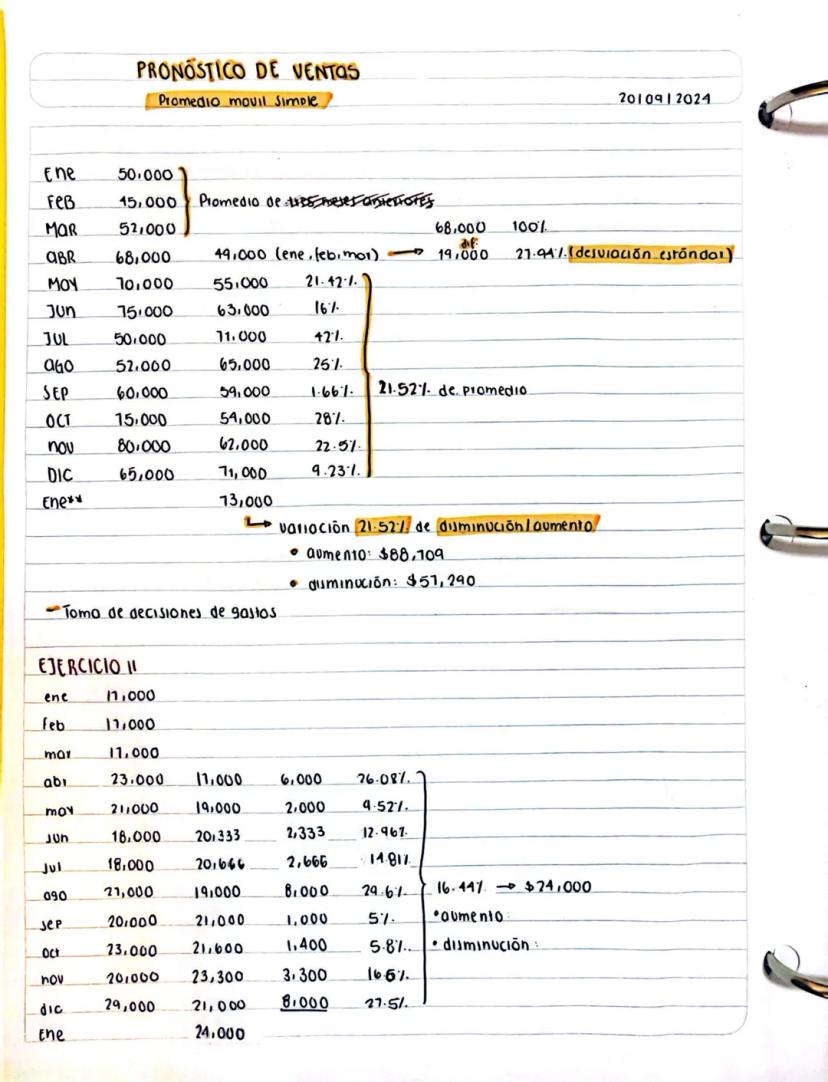 PRONÓSTICO DE VENTAS
Promedio movil simple
20/09/2024
Ene 50,000
FEB 45,000 Promedio de tres meses anteriores
MAR 52,000 68,000 100%
ABR 68,000 49,000 (ene, feb, mar) → dif: 19,000 27.94% (desviación estándar)
MAY 70,000 55,000 21.42%
JUN 75,000 63,000 16%
JUL 50,000 71,000 42%
AGO 52,000 65,000 25%
SEP 60,000 59,000 1.66% 21.52% de promedio
OCT 75,000 54,000 28%
NOV 80,000 62,000 22.5%
DIC 65,000 71,000 9.23%
Ene** 73,000
↳ variación 21.52% de disminución/aumento
• aumento: $88,709
• disminución: $57,290
- Toma de decisiones de gastos
EJERCICIO II
ene 17,000
feb 17,000
mar 17,000
abr 23,000 17,000 6,000 26.08%
may 21,000 19,000 2,000 9.52%
jun 18,000 20,333 2,333 12.96%
jul 18,000 20,666 2,666 14.81%
ago 27,000 19,000 8,000 29.6% 16.44% → $24,000
sep 20,000 21,000 1,000 5% • aumento:
oct 23,000 21,600 1,400 5.8% • disminución:
nov 20,000 23,300 3,300 16.5%
dic 29,000 21,000 8,000 27.5%
Ene 24,000